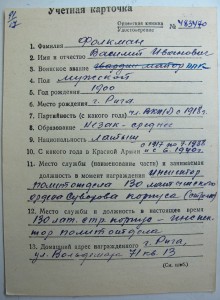 Учетная карточка
Орденская книжка № 483470
Удостоверение
1. Фамилия Фолкман
2. Имя и отчество Василий Иванович
3. Воинское звание майор
4. Пол мужской
5. Год рождения 1900
6. Место рождения г. Рига
7. Партийность (с какого года) чл. ВКП(б) с 1918 г.
8. Образование незак. среднее
9. Национальность латыш
10. С какого года в Красной Армии
11. Место службы (наименование части) и занимаемая
должность в момент награждения Инспектор
политотдела 130 латышского
ордена Суворова корпуса
12. Место службы и должность в настоящее время
130 лат. стр. корпус – инспек-
тор политотдела
13. Домашний адрес награжденного г. Рига,
ул. Вольдемара 71 кв 13